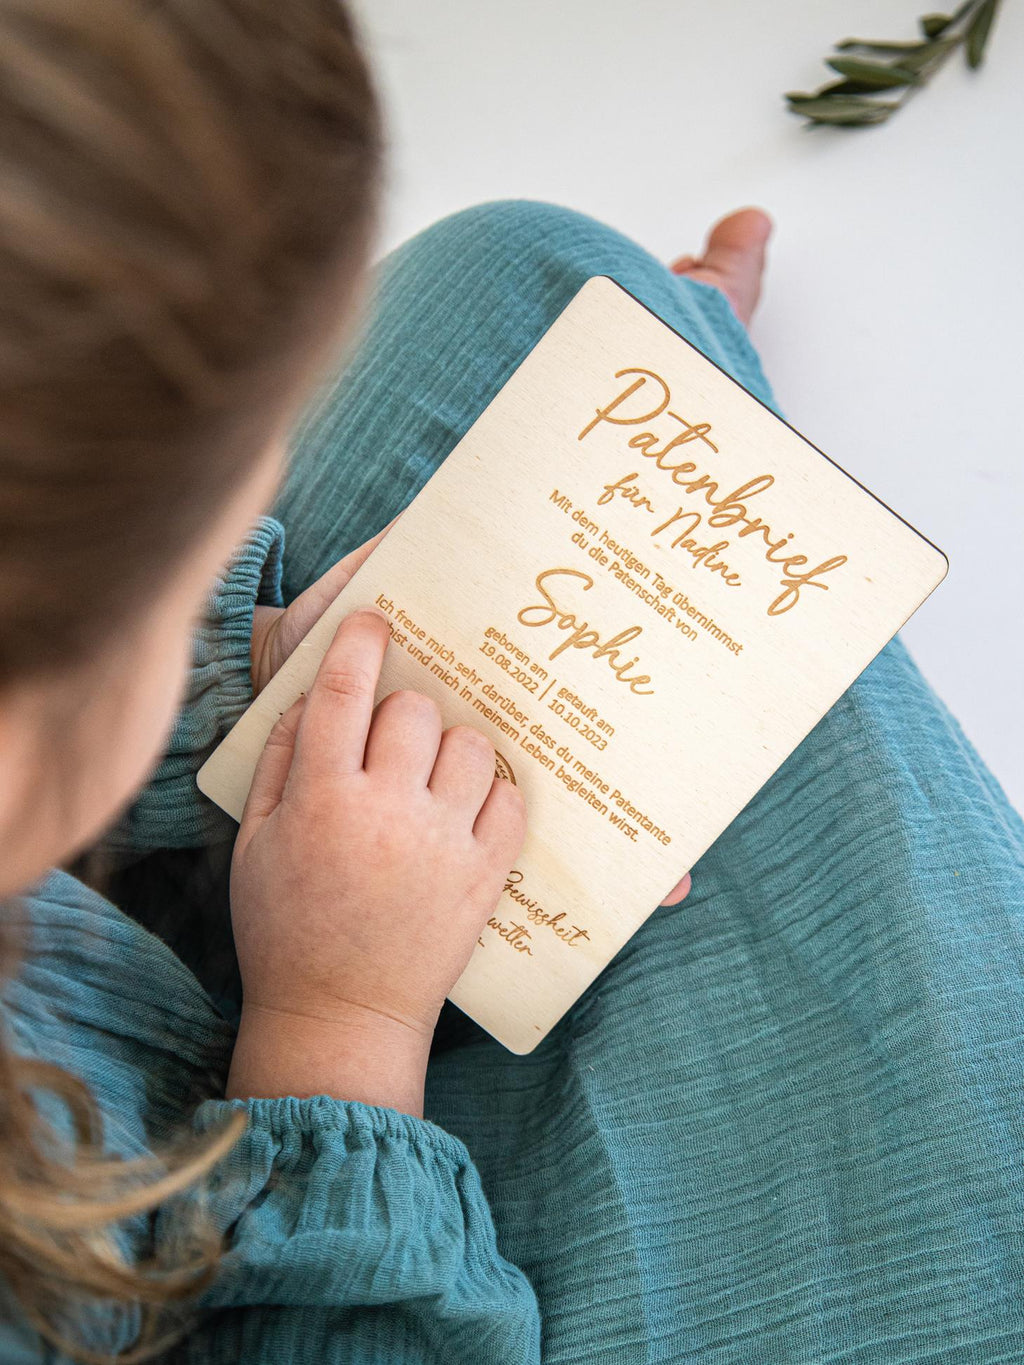 Patenbrief
für Nadine
Mit dem heutigen Tag übernimmst
du die Patenschaft von
Sophie
geboren am | getauft am
19.08.2022 | 10.10.2023
Ich freue mich sehr darüber, dass du meine Patentante
bist und mich in meinem Leben begleiten wirst.
Gewissheit